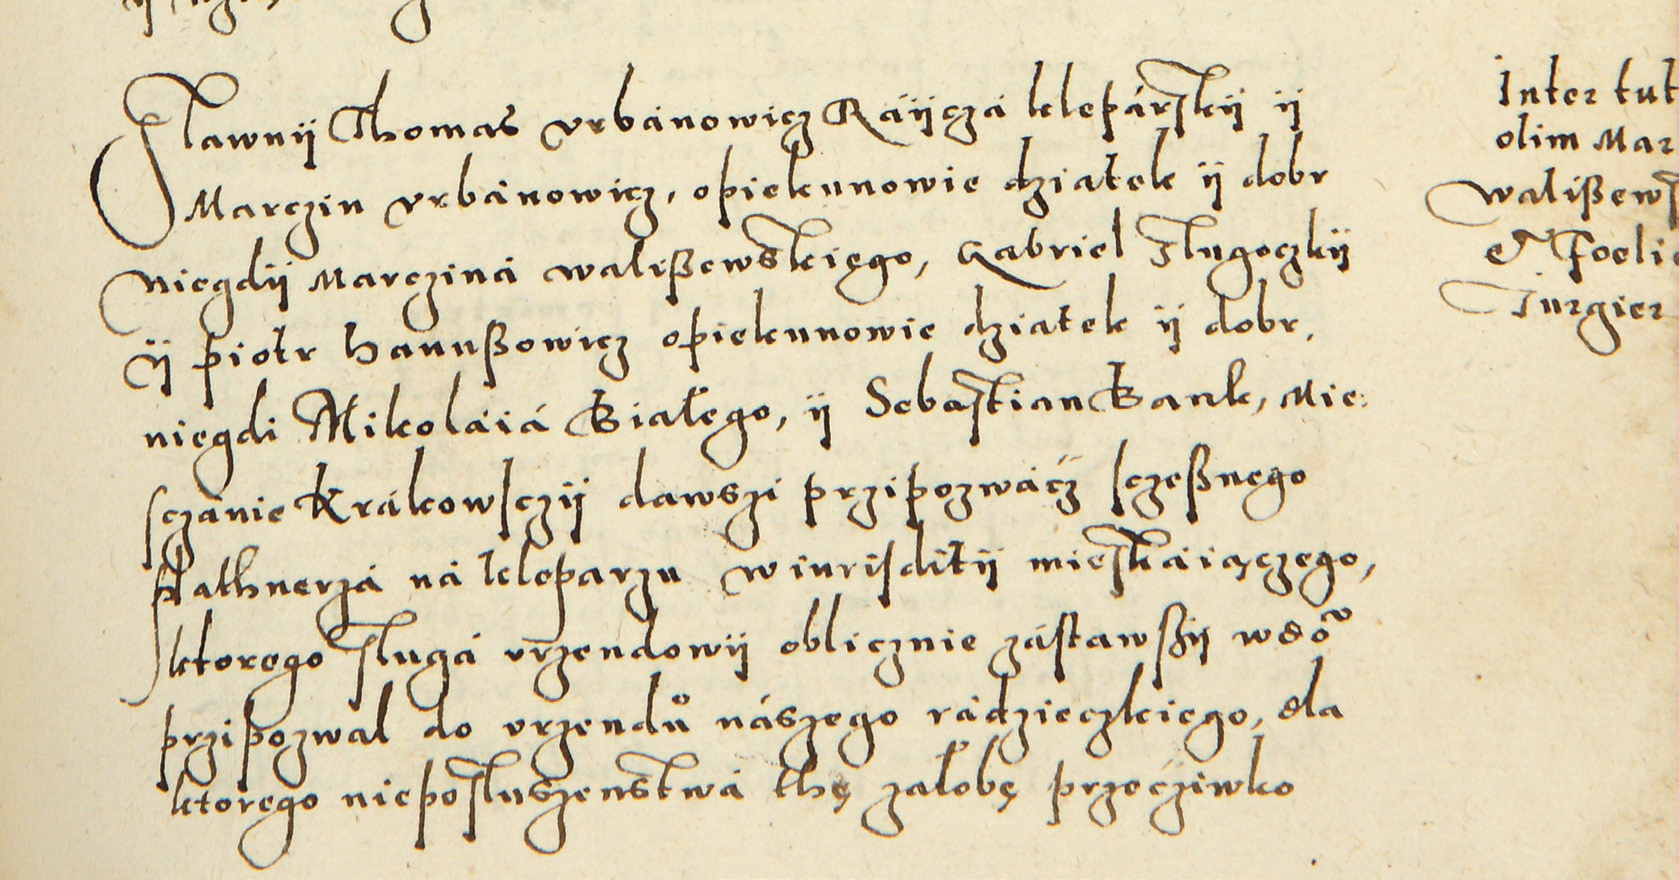 Slawnÿ Thomas vrbánowicz Ráÿczá kleparskÿ ÿ
Marczin vrbánowicz, opiekunowie dziatek ÿ dobr
niegdÿ Marcziná walißewskięgo, Gabriel Slugoczkÿ
ÿ piotr Hanußowicz opiekunowie dziatek ÿ dobr,
niegdi Mikoláiá Białego, ÿ Sebastian Bank, Mie:
sczanie Krákowsczÿ dawszi przipozwáć sczeßnego
na kleparzu w iurisditÿ mieskáiączego,
ktorego slugá vrzendowÿ oblicznie zástawßÿ
przipozwal do vrzendů nászego rádzieczkiego, dla
ktorego nieposluszenstwá thę załobę przećziwko
Inter tut
olim Mar
walißews
et Foelic
Turgier